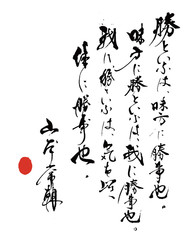 勝といふは、味方に勝事也。
味方に勝といふは、我に勝事也。
我に勝といふは、気を以
体に勝事也。
山本常朝